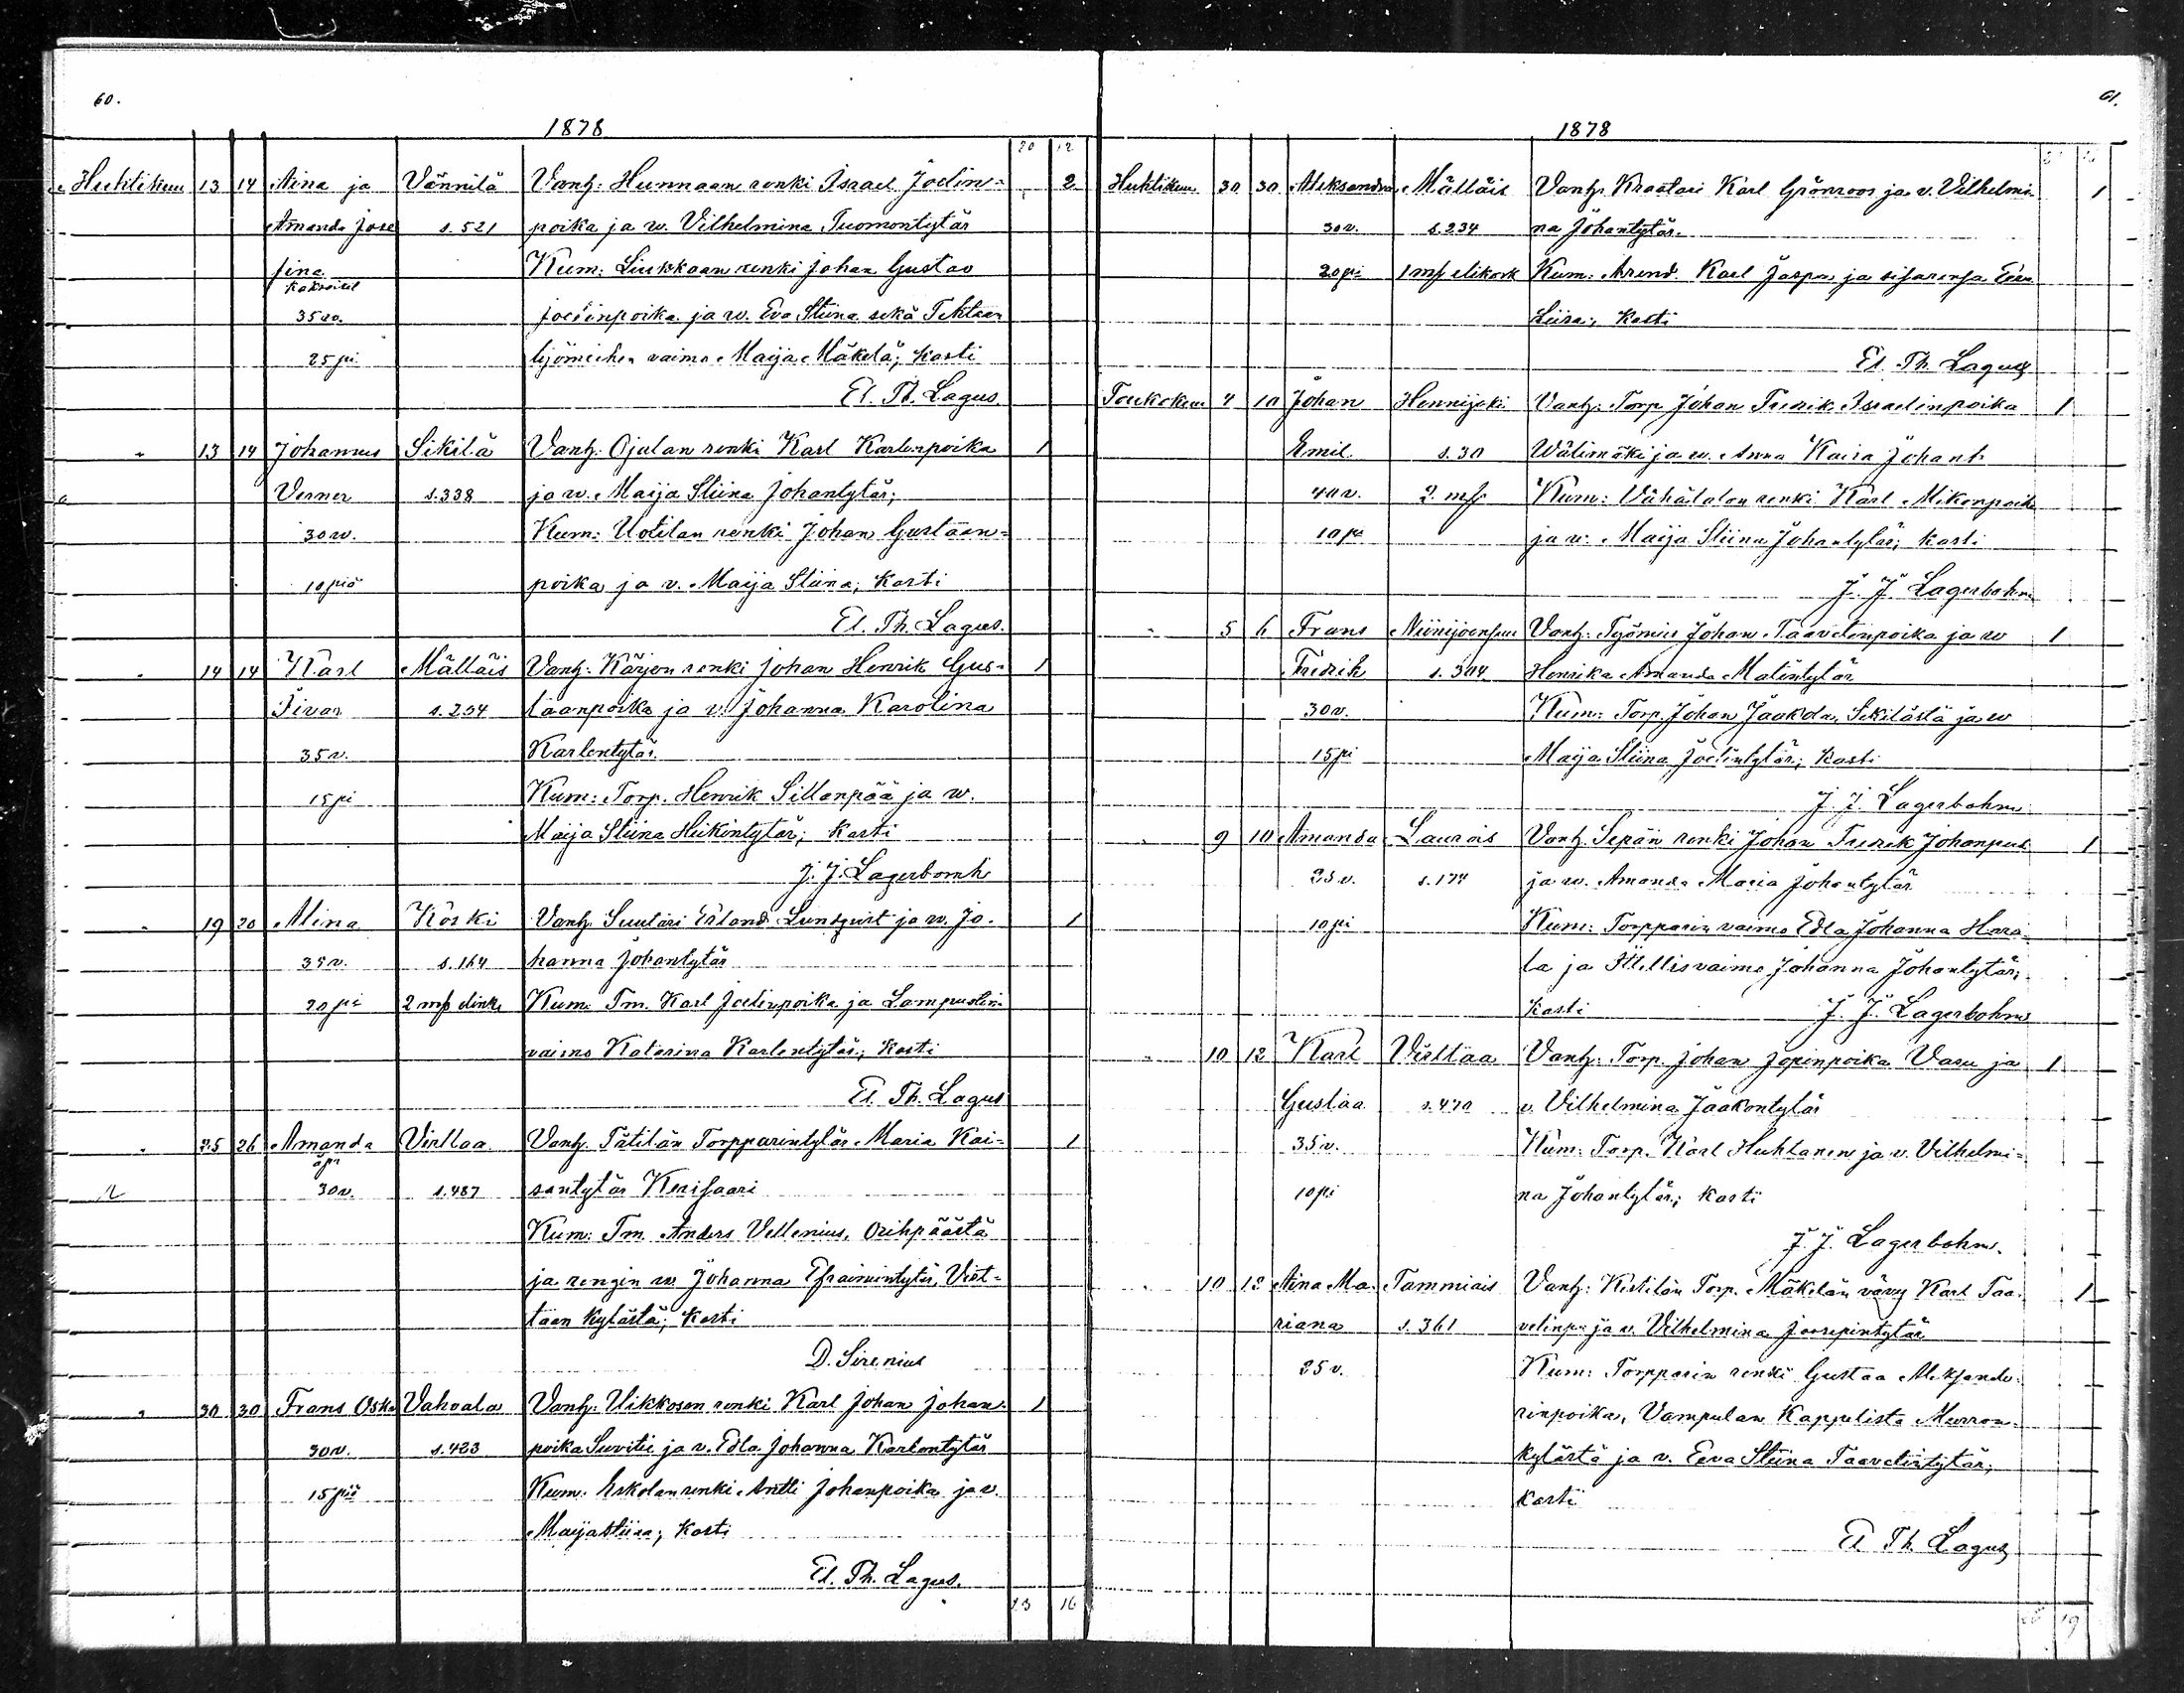 60.
1878
20 12
Huhtikuu 13 14 Aina ja Vännilä Vanh: Hunnaan renki Israel Joelin= 2
Amanda Jose s. 521 poika ja w. Vilhelmina Tuomontytär
fina Kum: Liukkaan renki Johan Gustav
kaksoiset
35 w. Joelinpoika ja w. Eva Stiina sekä Tehtaan
25 pi työmiehen vaimo Maija Mäkelä; kasti
El. Th. Lagus
" 13 14 Johannes Sikilä Vanh: Ojalan renki Karl Karlenpoika 1
Verner s. 338 ja w. Maija Stiina Johantytär;
30 w. Kum: Uotilan renki Johan Gustaan=
10 piö poika ja v. Maija Stiina; kasti
El. Th. Lagus.
" 14 14 Karl Mälläis Vanh: Kärjen renki Johan Henrik Gus= 1
Iivar s. 234 taanpoika ja v. Johanna Karolina
35 v. Karlentytär.
15 pi Kum: Torp. Henrik Sillanpää ja w.
Maija Stiina Heikintytär; kasti
J. J. Lagerbomh
" 19 20 Alina Koski Vanh: Suutari Erland Lundqvist ja w. Jo- 1
35 v. s. 164 hanna Johantytär
20 pi 2 mp Kum: Tm. Karl Joelinpoika ja
vaimo Katarina Karlentytär; kasti
El. Th. Lagus
" 25 26 Amanda Virttaa Vanh: Tätilän Torpparintytär Maria Kai= 1
äpr
30 v. s. 487 santytär Kerisaari
Kum: Tm. Anders Vellenius, Orihpäästä
ja rengin w. Johanna Efraimintytär, Virt=
taan kylästä; kasti
D. Sirenius
" 30 30 Frans Oska Vahvala Vanh: Uikkosen renki Karl Johan Johan 1
30 v. s. 423 poika Suvitie ja v. Edla Johanna Karlentytär
15 pii Kum: Eskolan renki Antti Johanpoika ja v.
Maijastiina; kasti
El. Th. Lagus.
23 16
61.
1878
Huhtikuu 30 30 Aleksandra Mälläis Vanh: Kraatari Karl Grönroos ja v. Vilhelmi 1
30 v. s. 234 na Johantytär.
20 pi 1 mp Kum: Arend. Karl Jaspa ja sisarensa
Liisa; kasti
El. Th. Lagus
Toukokuu 4 10 Johan Hennijoki Vanh: Torp Johan Fredrik Israelinpoika 1
Emil s. 30 Wälimäki ja w. Anna Kaisa Johant.
40 v. 2. mp Kum: Vähätalon renki Karl Mikonpoika
10 pi ja w. Maija Stiina Johantytär; kasti
J. J. Lagerbohm
" 5 6 Frans Niinijoensuu Vanh: Työmies Johan Taavetinpoika ja w 1
Fredrik s. 304 Henrika Amanda Matintytär
30 v. Kum: Torp. Johan Jaakola, Sikilästä ja w
15 pi Maija Stiina Joelintytär; kasti
J. J. Lagerbohm
" 9 10 Amanda Laurois Vanh: Sepän renki Johan Fredrik Johanpoik 1
25 v. s. 174 ja w. Amanda Maria Johantytär
10 pi Kum: Torpparin vaimo Edla Johanna Hara
la ja Itellisvaimo Johanna Johantytär;
kasti J. J. Lagerbohm
" 10 12 Karl Virttaa Vanh: Torp. Johan Jopinpoika Vasu ja 1
Gustaa s. 470 v. Vilhelmina Jaakontytär
35 v. Kum: Torp. Karl Huhtanen ja v. Vilhelmi=
10 pi na Johantytär; kasti
J. J. Lagerbohm.
" 10 12 Aina Ma- Tammiais Vanh: Kistilän Torp. Mäkelän vävy Karl Taa- 1
riana s. 361 vetinp. ja v. Vilhelmina Joosepintytär
25 v. Kum: Torpparin renki Gustaa Aleksande-
rinpoika, Vampulan Kappelista Murron-
kylästä ja v. Eeva Stiina Taavetintytär;
kasti
El Th Lagus
19